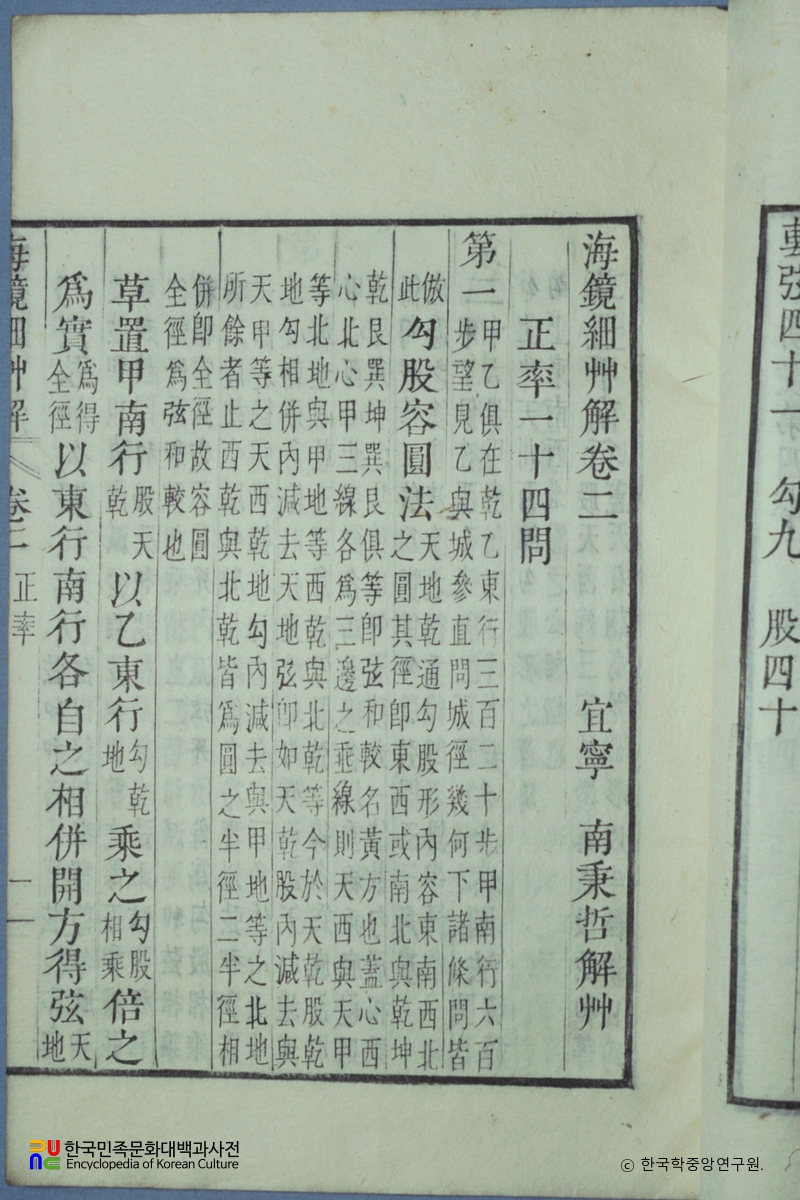 弦四十一 勾九 股四十
海鏡細艸解卷二 宜寧 南秉哲解艸
正率一十四問
第一 甲乙俱在乾乙東行三百二十步甲南行六百
步望見乙與城參直問城徑幾何下諸條問皆
倣此 勾股容圓法 天地乾通勾股形內容東南西北
之圓其徑即東西或南北與乾坤
乾艮巽坤巽艮俱等即弦和較名黃方也蓋心西
心北心甲三線各爲三邊之垂線則天西與天甲
等北地與甲地等西乾與北乾等今於天乾股乾
地勾相併內減去天地弦即如天乾股內減去與
天甲等之天西乾地勾內減去與甲地等之北地
所餘者止西乾與北乾皆爲圓之半徑二半徑相
併即全徑故容圓
全徑爲弦和較也
草置甲南行 股天乾 以乙東行 勾乾地 乘之 勾股相乘 倍之
爲實 爲得全徑 以東行南行各自之相併開方得弦 天地
海鏡細艸解 卷二 正率 一
한국민족문화대백과사전
Encyclopedia of Korean Culture
© 한국학중앙연구원.